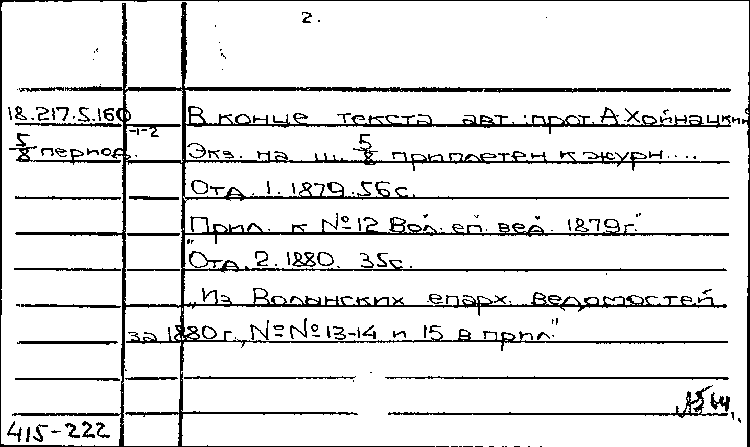 2.
18.217.5.160 В конце текста авт.: прот. А Хойнацкий
-1-2
5/8 период. Экз. на ш. 5/8 приплетен к журн....
Отд. 1. 1879. 56 с.
"Прил. к №12 Вол. еп. вед. 1879г."
Отд. 2. 1880. 35с.
„Из Волынских епарх. ведомостей
за 1880 г., №№13-14 и 15 в прил"
415-222